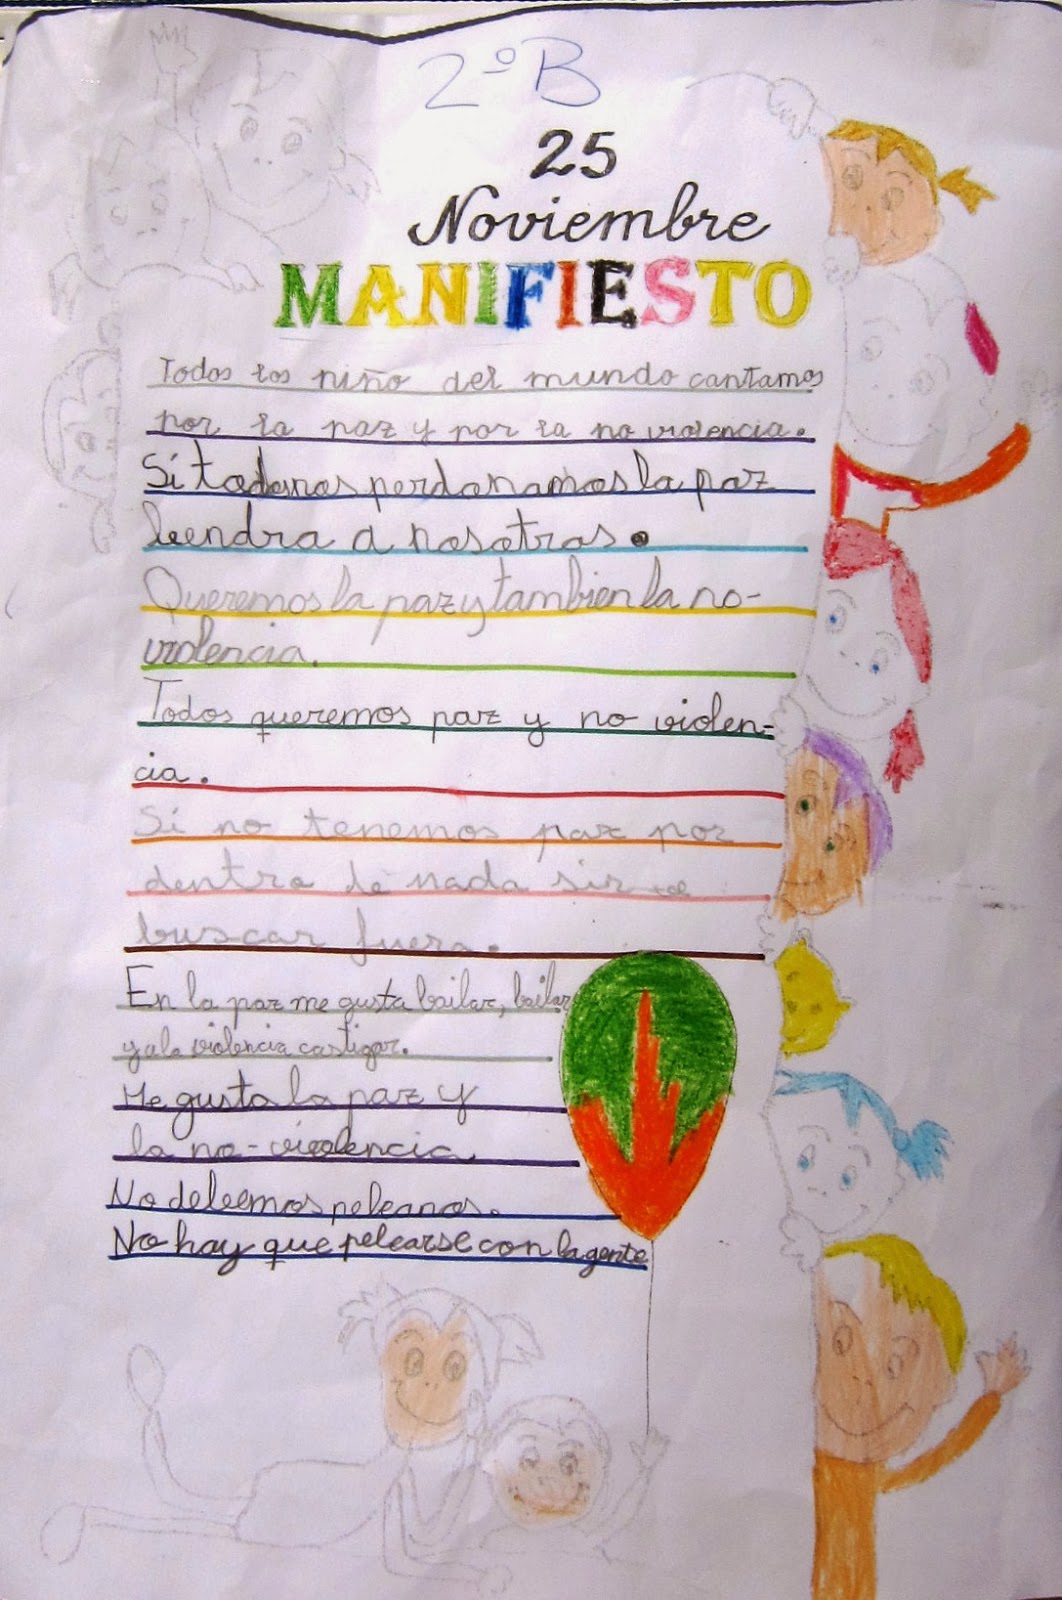 2º B
25
Noviembre
MANIFIESTO
Todos los niño del mundo cantamos
por la paz y por la no violencia.
Si todos nos perdonamos la paz
bendra a nosotros.
Queremos la paz y tambien la no-
violencia.
Todos queremos paz y no violen-
cia.
Si no tenemos paz por
dentro de nada sirve
buscar fuera.
En la paz me gusta bailar, bailar
y a la violencia castigar.
Me gusta la paz y
la no-violencia
No debemos pelearnos.
No hay que pelearse con la gente